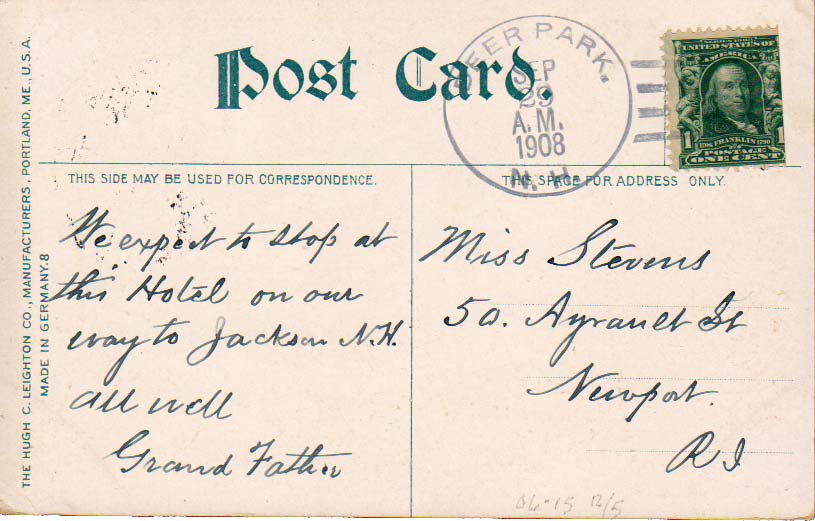 Post Card.
DEER PARK.
SEP
29
A.M.
1908
N.H.
UNITED STATES OF
AMERICA
1 FRANKLIN 1
POSTAGE
ONE CENT
THIS SIDE MAY BE USED FOR CORRESPONDENCE.
THIS SPACE FOR ADDRESS ONLY.
We expect to stop at
this Hotel on our
way to Jackson N.H.
all well
Grand Father
Miss Stevens
50. Ayrault St
Newport.
R I
THE HUGH C. LEIGHTON CO., MANUFACTURERS, PORTLAND, ME., U.S.A.
MADE IN GERMANY. 8